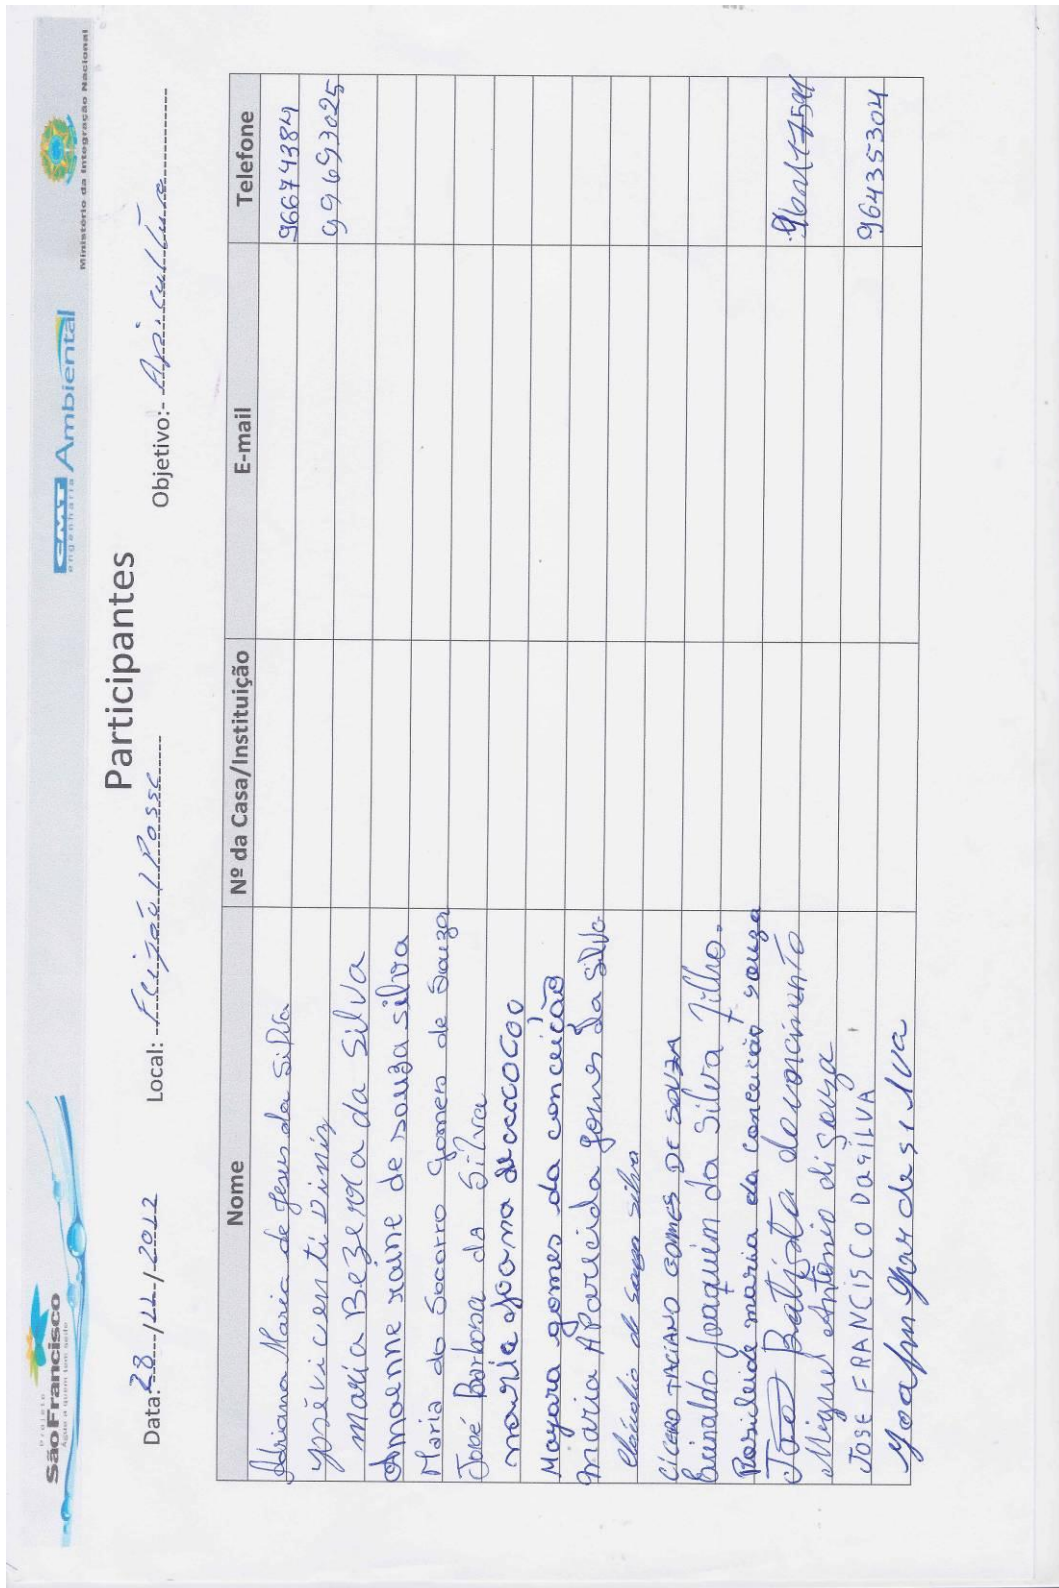 Projeto
São Francisco
Água a quem tem sede
CMT Ambiental
engenharia
Ministério da Integração Nacional
Participantes
Data: 28/11/2012 Local: Feijão / Posse Objetivo:- Apicultura
Nome Nº da Casa/Instituição E-mail Telefone
Adriana Maria de Jesus da Silva 96674384
José vicenti Diniz 99693025
maria Bezerra da Silva
Amaenne raiane de souza silva
Maria do Socorro Gomes de Souza
José Barbosa da Silva
maria Joana
Mayara gomes da conceição
maria APArecida gomes Da silva
Claúdio de souza silva
CÍCERO TACIANO GOMES DE SOUZA
Erinaldo Joaquim da Silva Filho.
Rosileide maria da conceição souza
João Batista do nascimento
Miguel Antônio di Souza
JOSE FRANCISCO DASILVA 96435304